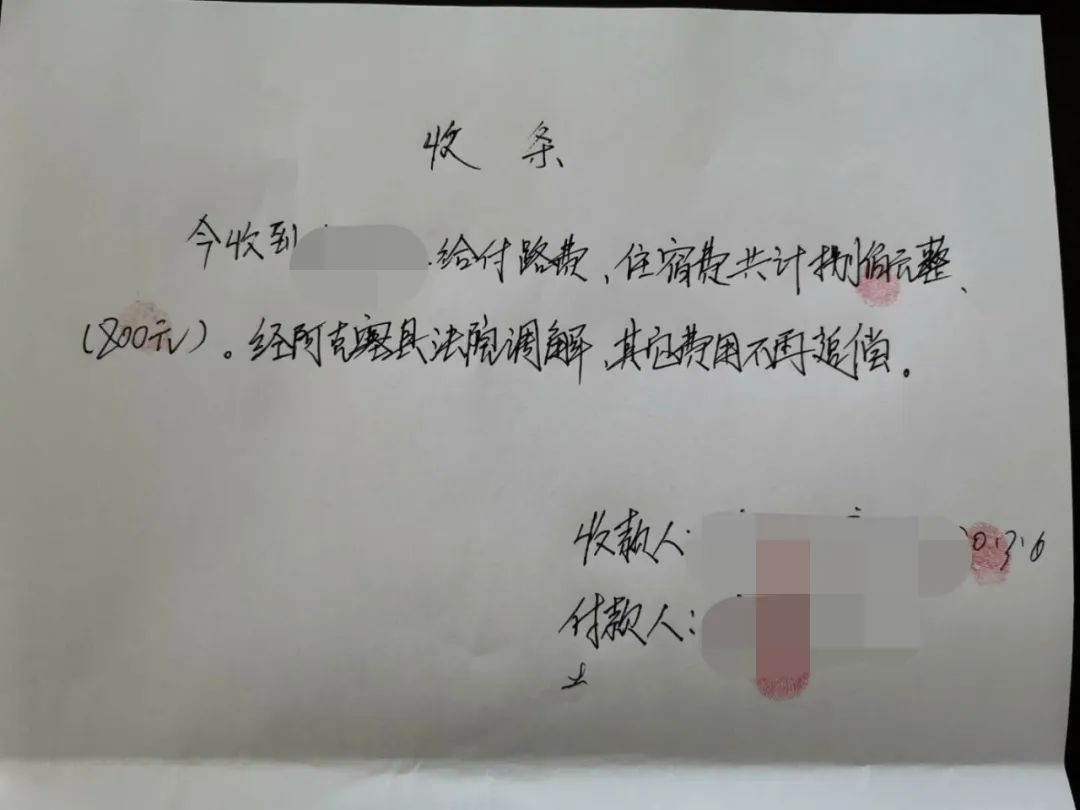 收条
今收到 给付路费、住宿费共计捌佰元整、
(800元)。经阿克塞县法院调解、其它费用不再追偿。
收款人: 20.7.6
付款人: